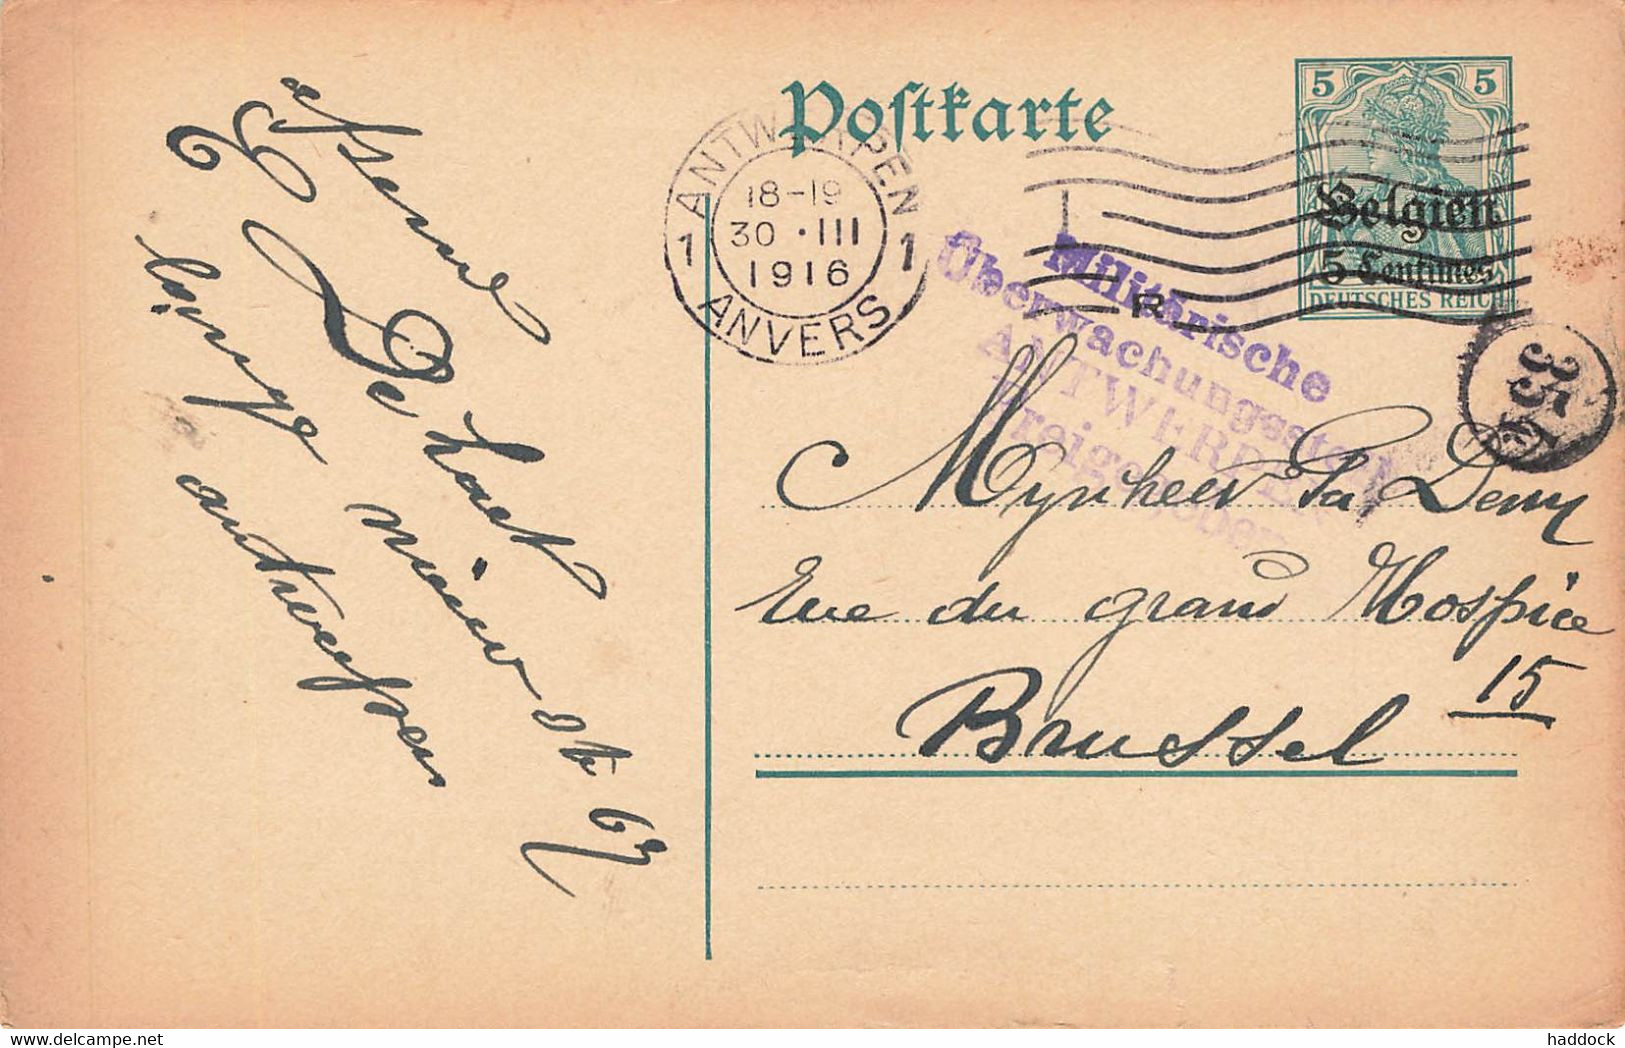 Postkarte
5 5
Belgien
5 Centimes
DEUTSCHES REICH
ANTWERPEN
18-19
30 · III
1916
1 1
ANVERS
Militärische
Überwachungsstelle
ANTWERPEN
Freigegeben
35
Mynheer
Rue du grand Hospice
15
Brussel
De Laet
lange nieuw str 67
antwerpen
haddock